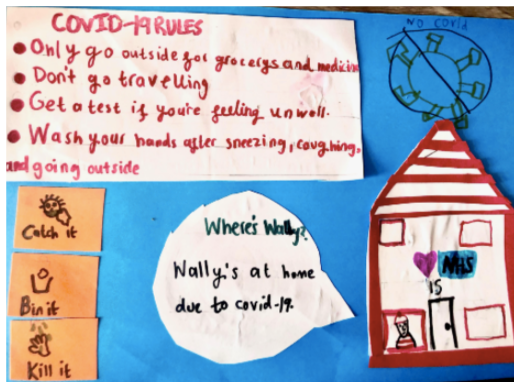 COVID-19 RULES
Only go outside for grocerys and medicine
Don't go travelling
Get a test if you're feeling unwell.
Wash your hands after sneezing, coughing,
and going outside
NO covid
Catch it
Bin it
Kill it
Where's Wally?
Wally's at home
due to covid-19.
NHS
15